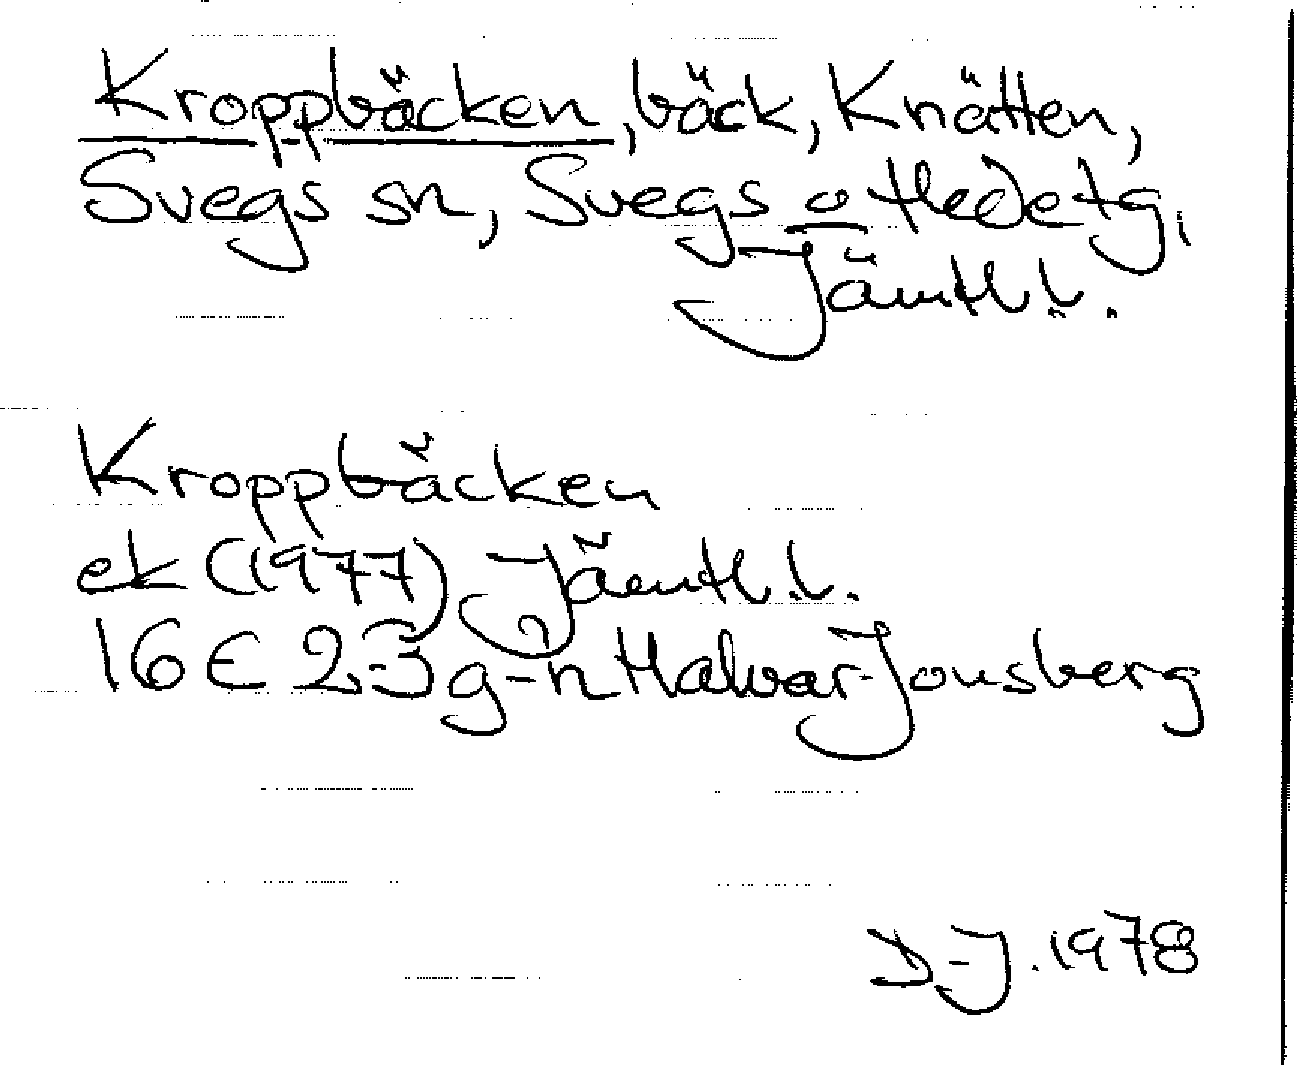 Kroppbäcken, bäck, Knätten,
Svegs sn, Svegs o Hede tg,
Jämtl.l.
Kroppbäcken
ek (1977) Jämtl.l.
16 E 2-3 g-h Halvar-Jonsberg
D-J. 1978